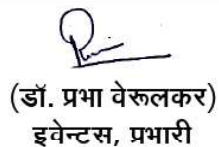 (डॉ. प्रभा वेरूलकर)
इवेन्टस, प्रभारी